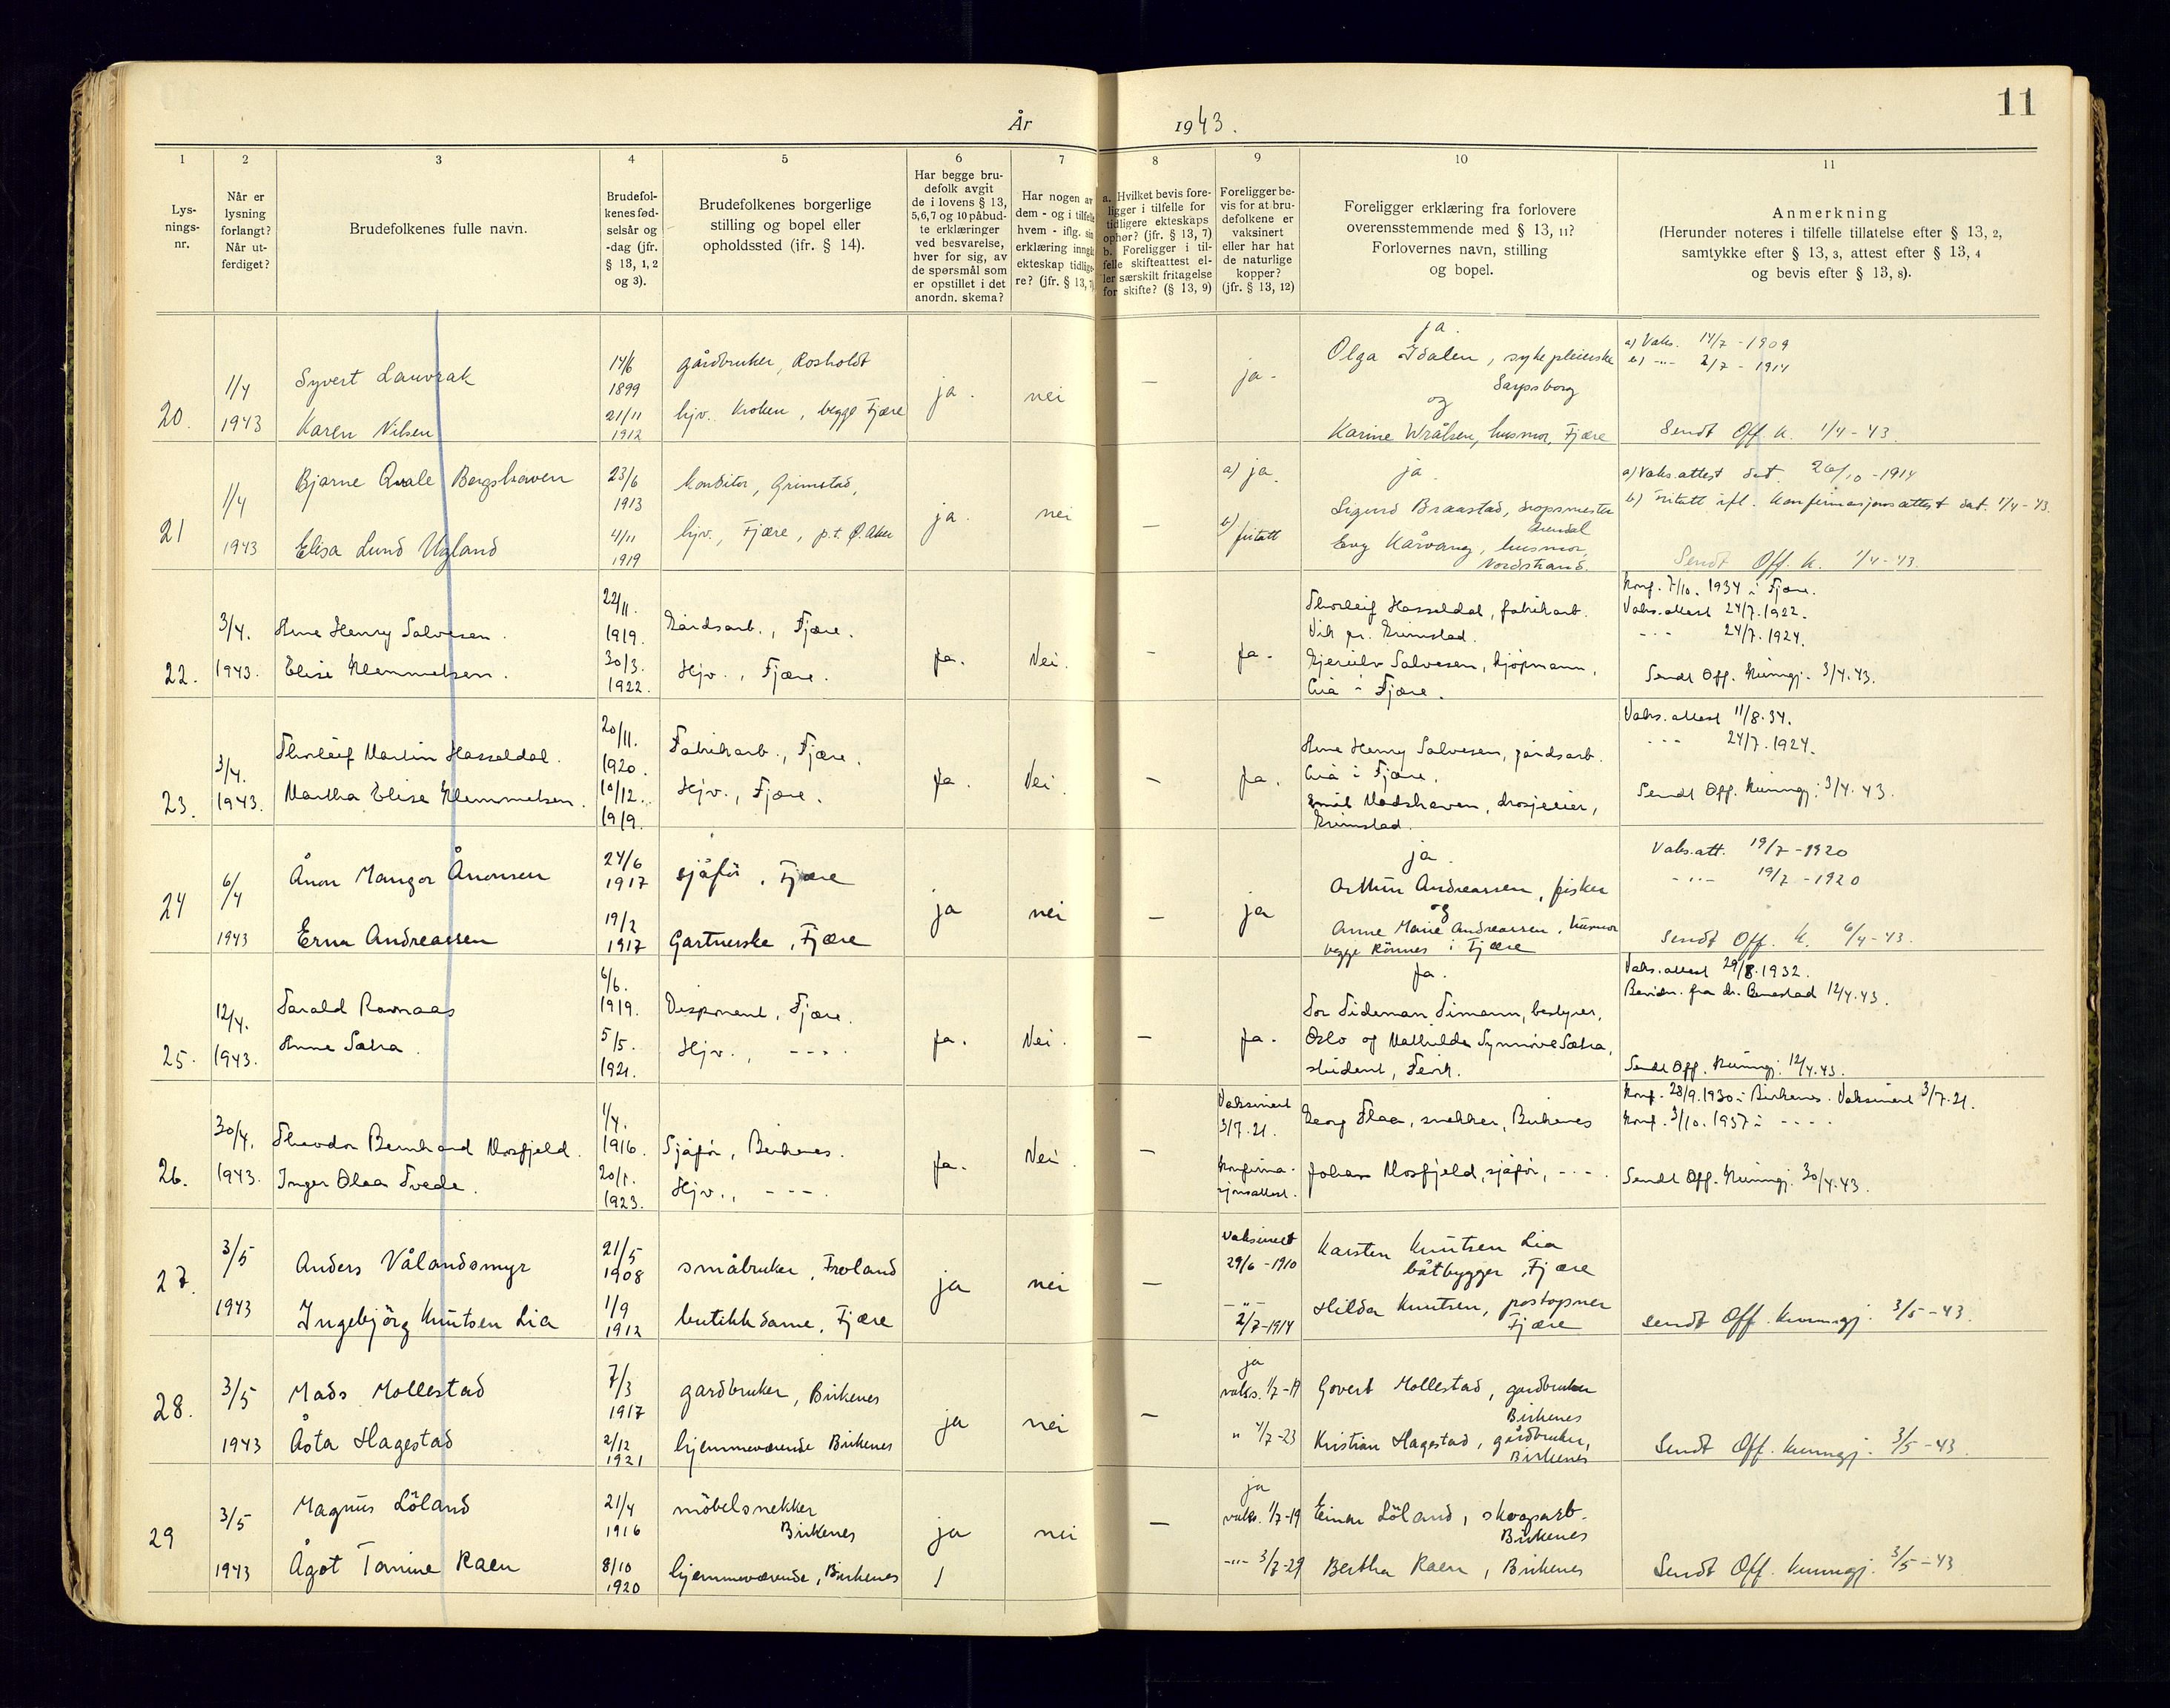 År 1943.
11
1 2 3 4 5 6 7 8 9 10 11
Lys-
nings-
nr.
Når er
lysning
forlangt?
Når ut-
ferdiget?
Brudefolkenes fulle navn.
Brudefol-
kenes fød-
selsår og
-dag (jfr.
§ 13, 1, 2
og 3).
Brudefolkenes borgerlige
stilling og bopel eller
opholdssted (jfr. § 14).
Har begge bru-
defolk avgit
de i lovens § 13,
5, 6, 7 og 10 påbud-
te erklæringer
ved besvarelse,
hver for sig, av
de spørsmål som
er opstillet i det
anordn. skema?
Har nogen av
dem - og i tilfelle
hvem - iflg. sin
erklæring inngått
ekteskap tidlige-
re? (jfr. § 13, 7)
a. Hvilket bevis fore-
ligger i tilfelle for
tidligere ekteskaps
ophør? (jfr. § 13, 7)
b. Foreligger i til-
felle skifteattest el-
ler særskilt fritagelse
for skifte? (§ 13, 9)
Foreligger be-
vis for at bru-
defolkene er
vaksinert
eller har hat
de naturlige
kopper?
(jfr. § 13, 12)
Foreligger erklæring fra forlovere
overensstemmende med § 13, 11?
Forlovernes navn, stilling
og bopel.
Anmerkning
(Herunder noteres i tilfelle tillatelse efter § 13, 2,
samtykke efter § 13, 3, attest efter § 13, 4
og bevis efter § 13, 8).
20
1/4
1943
Syvert Lauvrak
Karen Nilsen
14/6
1899
21/11
1912
gårdbruker, Rosholdt
hjv. Kroken, begge Fjære
ja.
nei
—
ja -
ja.
Olga Idalen, sykepleierske
Sarpsborg
og
Karine Wrålsen, husmor, Fjære
a) Vaks. 14/7 - 1909
b) -"- 2/7 - 1914
Sendt Off. K. 1/4 - 43.
21
1/4
1943
Bjarne Qvale Bergshaven
Elisa Lund Ugland
23/6
1913
4/11
1919
konditor, Grimstad,
hjv., Fjære, p.t. Ø. Aker
ja.
nei
—
a) ja.
b) fritatt
ja.
Sigurd Braastad,
Arendal
Evy Kårvang, husmor,
Nordstrand.
a) Vaks.attest dat. 26/10 - 1914
b) fritatt ifl. Konfirmasjonsattest dat. 1/4 - 43.
Sendt Off. K. 1/4 - 43.
22.
3/4.
1943.
Arne Henry Salvesen.
Elise Klemmetsen.
22/11.
1919.
30/3.
1922.
Gårdsarb., Fjære.
Hjv., Fjære.
Ja.
Nei.
-
Ja.
Thorleif Hasseldal, fabrikarb.
Vik pr. Grimstad.
Salvesen, kjøpmann,
Bia i Fjære.
Konf. 7/10. 1934 i Fjære.
Vaks.attest 24/7. 1922.
- - - 24/7. 1924.
Sendt Off. Kunngj. 3/4. 43.
23.
3/4.
1943.
Thorleif Martin Hasseldal.
Martha Elise Klemmetsen.
20/11.
1920.
10/12.
1919.
Fabrikarb., Fjære.
Hjv., Fjære.
Ja.
Nei.
—
Ja.
Arne Henry Salvesen, gårdsarb.
Bia i Fjære.
Emil Madshaven, drosjeeier,
Grimstad.
Vaks.attest 11/8. 34.
- - - 24/7. 1924.
Sendt Off. Kunngj. 3/4. 43.
24
6/4
1943
Ånon Mangor Ånonsen
Erna Andreassen
24/6
1917
19/2
1917
sjåfør, Fjære
Gartnerske, Fjære
ja
nei
—
ja
ja.
Arthur Andreassen, fisker
og
Anne Marie Andreassen, husmor
begge Rönnes i Fjære
Vaks.att. 19/7 - 1920
- " - 19/7 - 1920
Sendt Off. K. 6/4 - 43.
25.
12/4.
1943.
Tarald Ravnaas
Anne Sætra.
6/6.
1919.
5/5.
1921.
Disponent, Fjære.
Hjv., - - - .
Ja.
Nei.
—
Ja.
Ja.
Tor Tideman Timann, bestyrer,
Oslo og Mathilde Synnøve Sætra,
student,
Vaks.attest 29/8. 1932.
Bevidn. fra dr. 12/4. 43.
Sendt Off. Kunngj. 12/4. 43.
26.
30/4.
1943.
Theodor Bernhard Mosfjeld.
Inger Olaa Tvede.
1/4.
1916.
20/1.
1923.
Sjåfør, Birkenes.
Hjv., - - - .
Ja.
Nei.
—
Vaksinert
3/7. 21.
Konfirma-
sjonsattest.
Georg Flaa, snekker, Birkenes
Johan Mosfjeld, sjåfør, - - - .
Konf. 28/9. 1930 i Birkenes. Vaksinert 3/7. 21.
Konf. 3/10. 1937 i - - - -
Sendt Off. Kunngj. 30/4. 43.
27.
3/5
1943
Anders Vålandsmyr
Ingebjörg Knutsen Lia
21/5
1908
1/9
1912
småbruker, Froland
butikkdame, Fjære
ja
nei
—
Vaksinert
29/6 - 1910
- " -
2/7 - 1914
Karsten Knutsen Lia
båtbygger, Fjære
Hilda Knutsen, postopner
Fjære
Sendt Off. Kunngj. 3/5 - 43.
28.
3/5
1943
Mads Mollestad
Åsta Hagestad
7/3
1917
2/12
1921
gardbruker, Birkenes
hjemmeværende Birkenes
ja
nei
—
ja
vaks. 1/7 - 19
" 4/7 - 23
Govert Mollestad, gardbruker
Birkenes
Kristian Hagestad, gårdbruker,
Birkenes
Sendt Off. Kunngj. 3/5 - 43.
29
3/5
1943
Magnus Löland
Ågot Tomine Raen
21/4
1916
8/10
1920
möbelsnekker
Birkenes
hjemmeværende, Birkenes
ja
nei
—
ja
vaks. 1/7 - 19
- " - 3/7 - 29
Einar Löland, skogsarb.
Birkenes
Bertha Raen, Birkenes
Sendt Off. Kunngj. 3/5 - 43